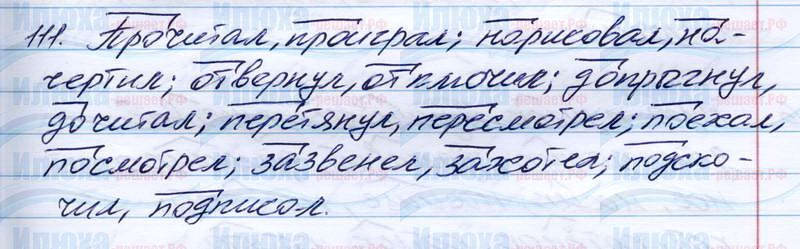 111. Прочитал, проиграл; нарисовал, на-
чертил; отвернул, отключил; допрыгнул,
дочитал; перетянул, пересмотрел; поехал,
посмотрел; зазвенел, захотел; подско-
чил, подписал.